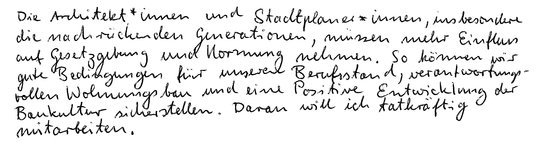 Die Architekt*innen und Stadtplaner*innen, insbesondere
die nachrückenden Generationen, müssen mehr Einfluss
auf Gesetzgebung und Normung nehmen. So können wir
gute Bedingungen für unseren Berufsstand, verantwortungs-
vollen Wohnungsbau und eine Positive Entwicklung der
Baukultur sicherstellen. Daran will ich tatkräftig
mitarbeiten.